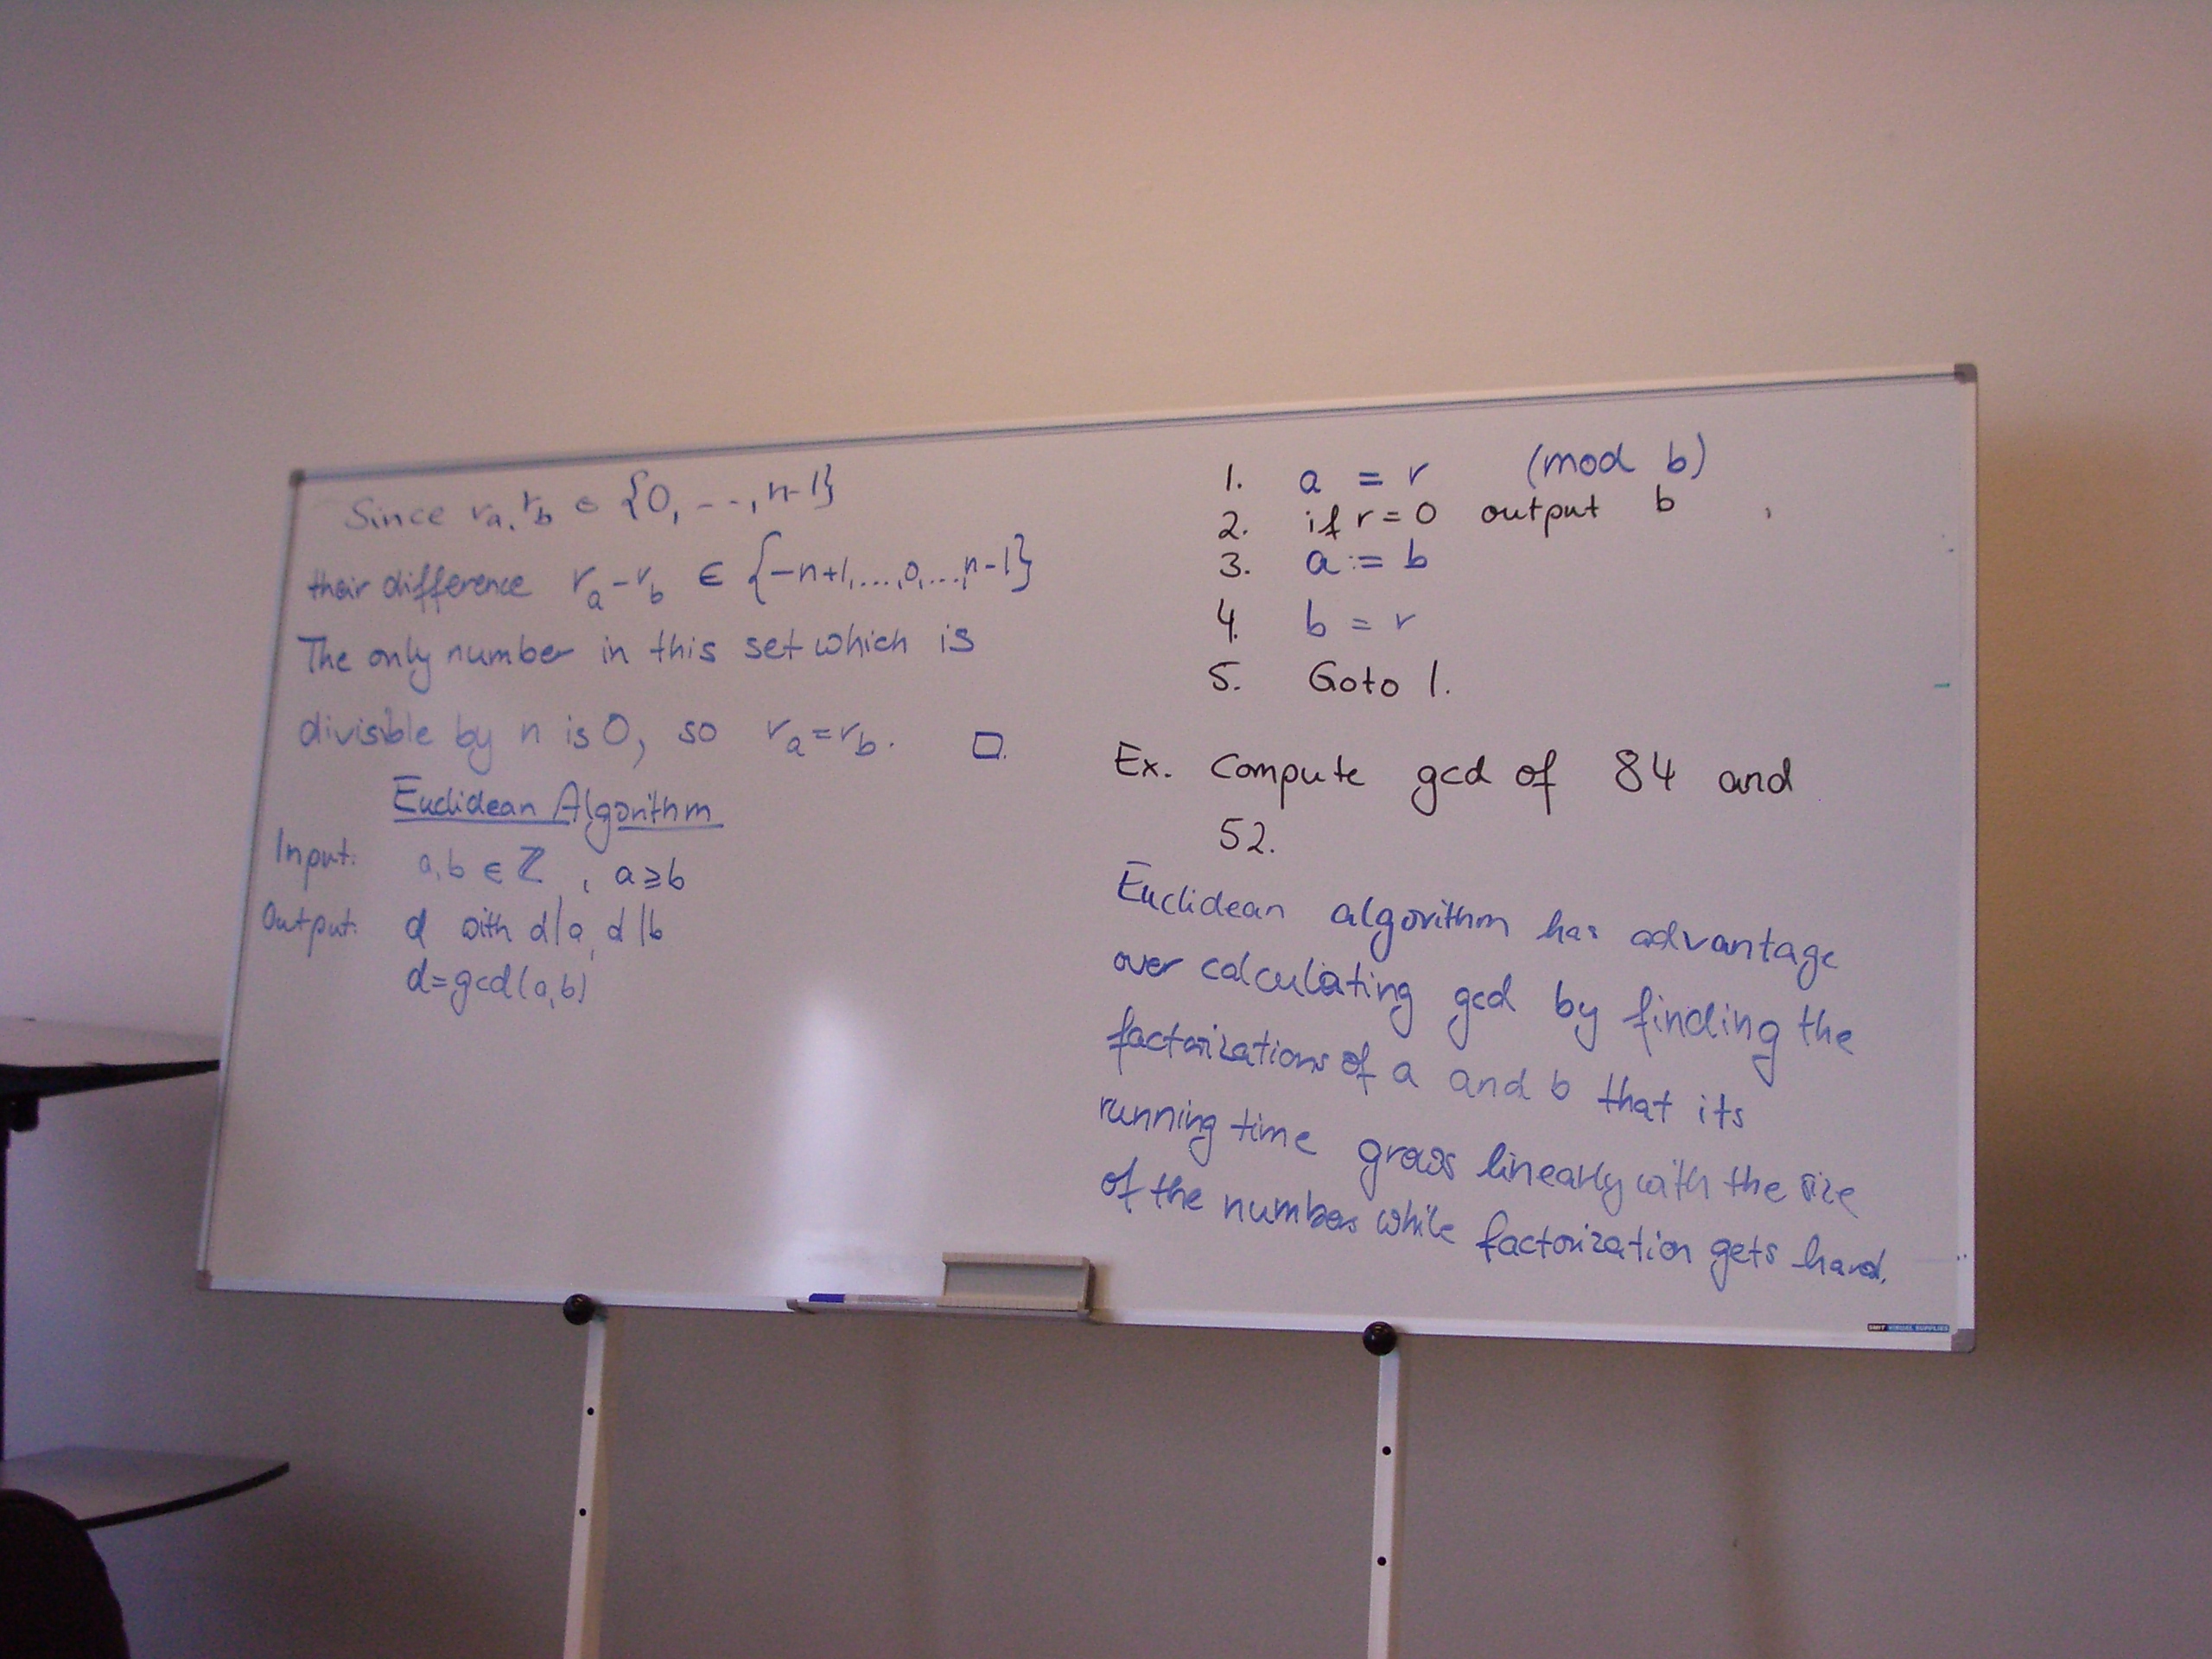 Since ra, rb ∈ {0, ..., n-1}
their difference ra-rb ∈ {-n+1,...,0,...,n-1}
The only number in this set which is
divisible by n is 0, so ra=rb. □
Euclidean Algorithm
Input: a,b ∈ ℤ, a≥b
Output: d with d|a, d|b
d=gcd(a,b)
1. a = r (mod b)
2. if r=0 output b
3. a := b
4. b = r
5. Goto 1.
Ex. Compute gcd of 84 and
52.
Euclidean algorithm has advantage
over calculating gcd by finding the
factorizations of a and b that its
running time grows linearly with the size
of the numbers while factorization gets hard.
SMIT VISUAL SUPPLIES